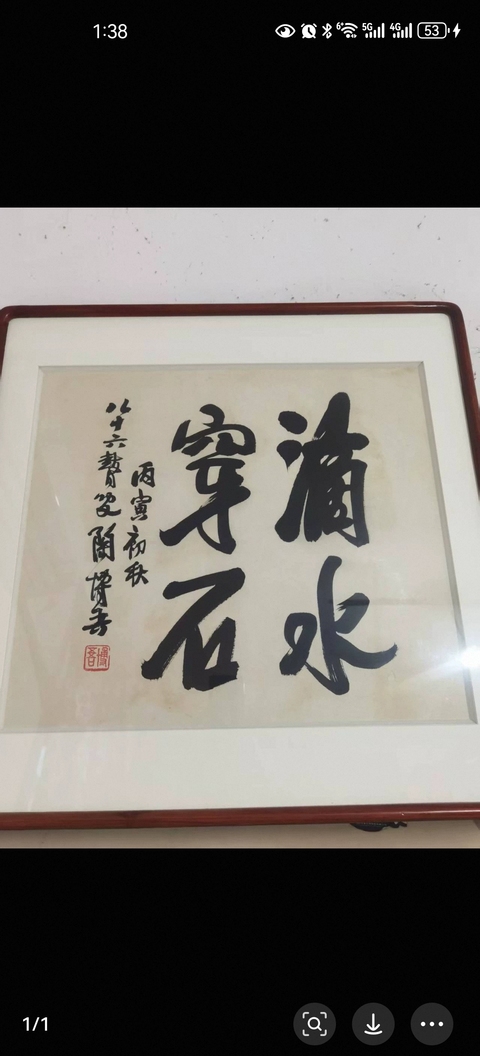 1:38
6 5G 4G 53
滴水
穿石
丙寅初秋
八十六贅叟陶博吾
博吾
1/1